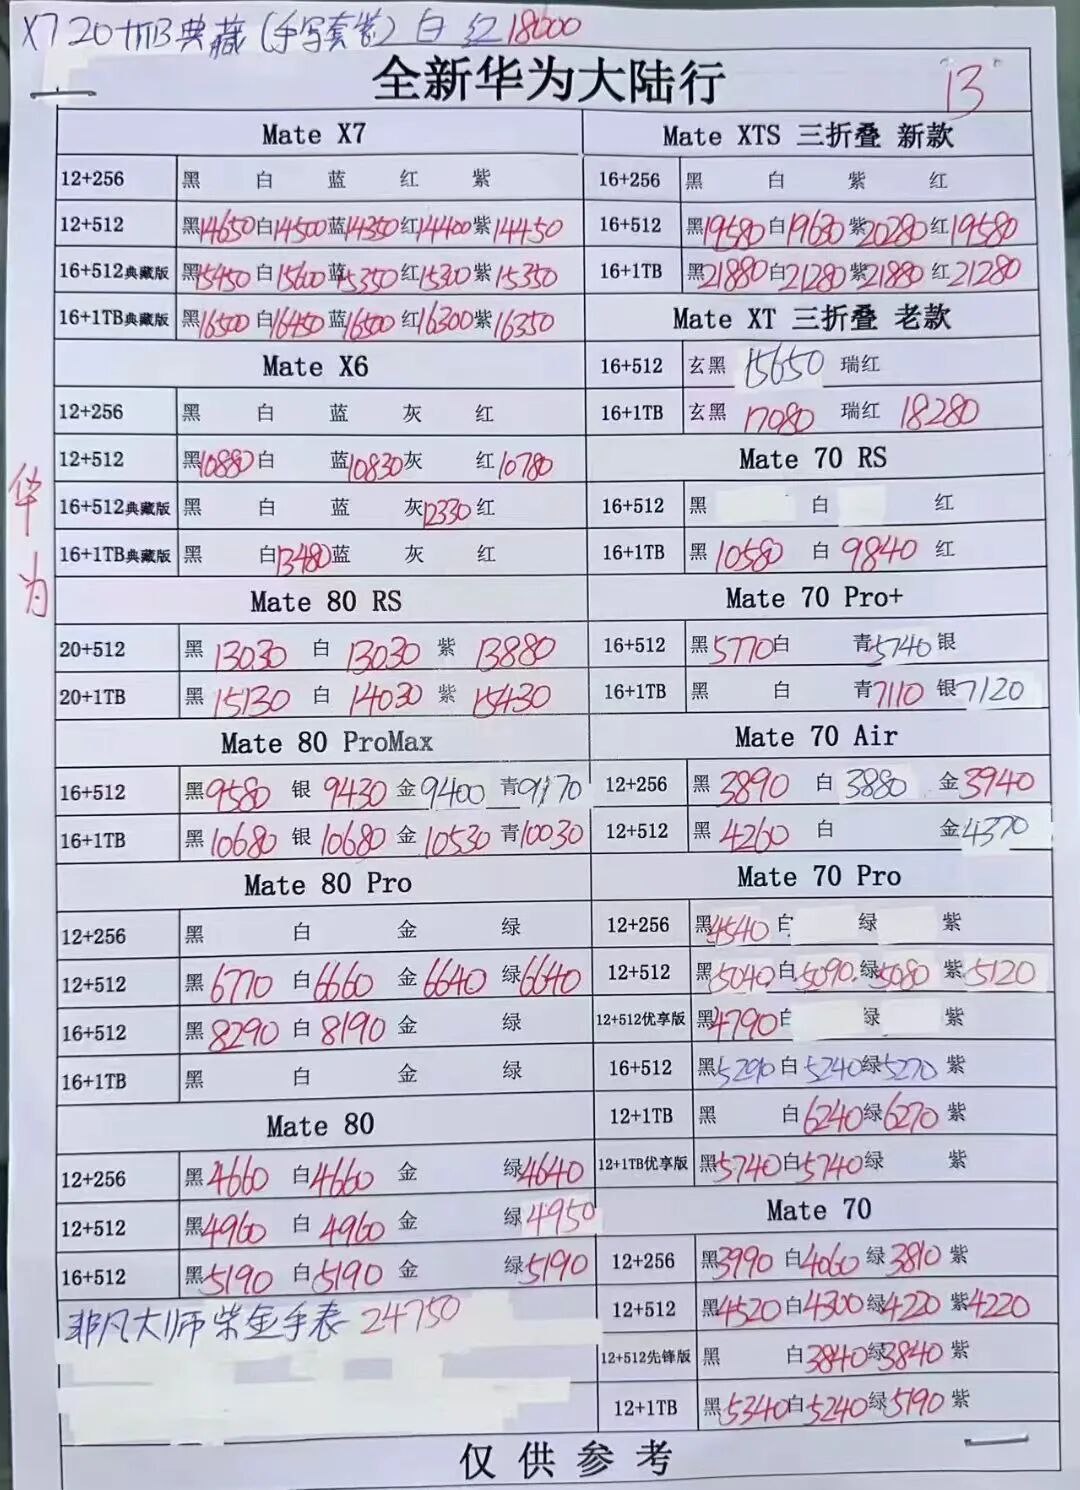 X7 20+1TB典藏(手写套装) 白 红18000
全新华为大陆行
13
华为
Mate X7
12+256 黑 白 蓝 红 紫
12+512 黑14650白14500蓝14350红14400紫14450
16+512典藏版 黑15450白15600蓝15350红15300紫15350
16+1TB典藏版 黑16500白16450蓝16500红16300紫16350
Mate X6
12+256 黑 白 蓝 灰 红
12+512 黑10880白 蓝10830灰 红10780
16+512典藏版 黑 白 蓝 灰12330红
16+1TB典藏版 黑 白13480蓝 灰 红
Mate 80 RS
20+512 黑 13030 白 13030 紫 13880
20+1TB 黑 15130 白 14030 紫 15430
Mate 80 ProMax
16+512 黑9580 银 9430 金9400 青9170
16+1TB 黑10680 银 10680 金 10530 青10030
Mate 80 Pro
12+256 黑 白 金 绿
12+512 黑6770 白6660 金6640 绿6640
16+512 黑8290 白8190 金 绿
16+1TB 黑 白 金 绿
Mate 80
12+256 黑4660 白4660 金 绿4640
12+512 黑4960 白4960 金 绿4950
16+512 黑5190 白5190 金 绿5190
非凡大师紫金手表 24750
Mate XTS 三折叠 新款
16+256 黑 白 紫 红
16+512 黑19580白19630紫20280红19580
16+1TB 黑21880白21280紫21880红21280
Mate XT 三折叠 老款
16+512 玄黑 15650 瑞红
16+1TB 玄黑 17080 瑞红 18280
Mate 70 RS
16+512 黑 白 红
16+1TB 黑10580 白 9840 红
Mate 70 Pro+
16+512 黑5770白 青5740银
16+1TB 黑 白 青7110 银7120
Mate 70 Air
12+256 黑 3890 白 3880 金3940
12+512 黑 4260 白 金4370
Mate 70 Pro
12+256 黑4540 白 绿 紫
12+512 黑5040白5090绿5080 紫5120
12+512优享版 黑4790白 绿 紫
16+512 黑5290白5240绿5270 紫
12+1TB 黑 白6240绿6270 紫
12+1TB优享版 黑5740白5740绿 紫
Mate 70
12+256 黑3990 白4060 绿3810 紫
12+512 黑4520白4300绿4220 紫4220
12+512先锋版 黑 白3840绿3840 紫
12+1TB 黑5340白5240绿5190 紫
仅供参考